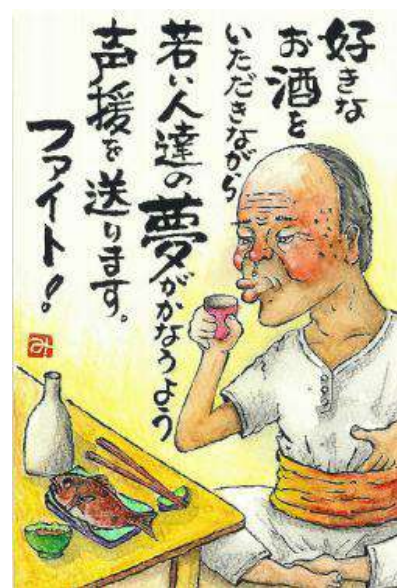 好きな
お酒を
いただきながら
若い人達の夢がかなうよう
声援を送ります。
ファイト!
み